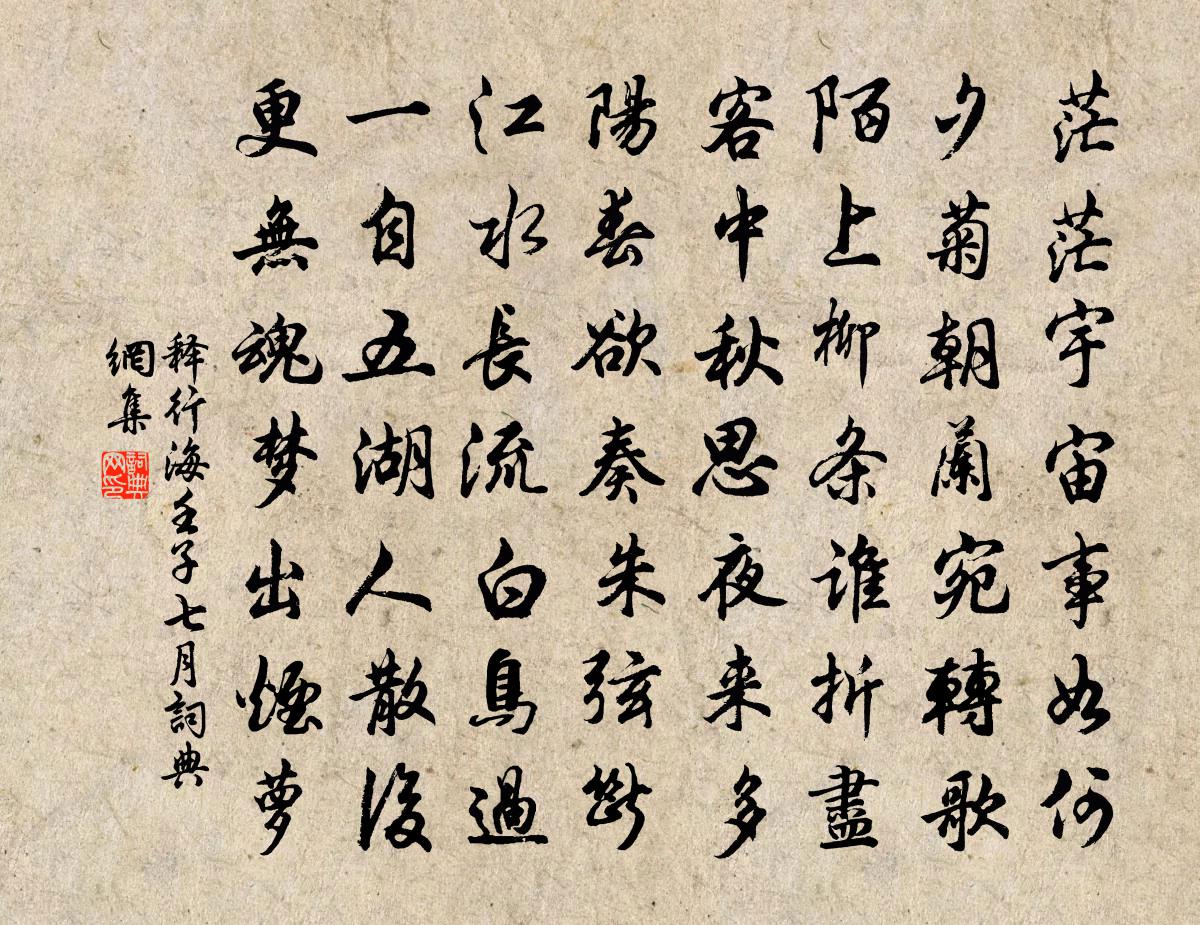 茫茫宇宙事如何
夕菊朝蘭宛轉歌
陌上柳条谁折盡
客中秋思夜来多
陽春欲奏朱弦斷
江水長流白鳥過
一自五湖人散後
更無魂梦出烟萝
释行海壬子七月詞典
網集
詞典网印